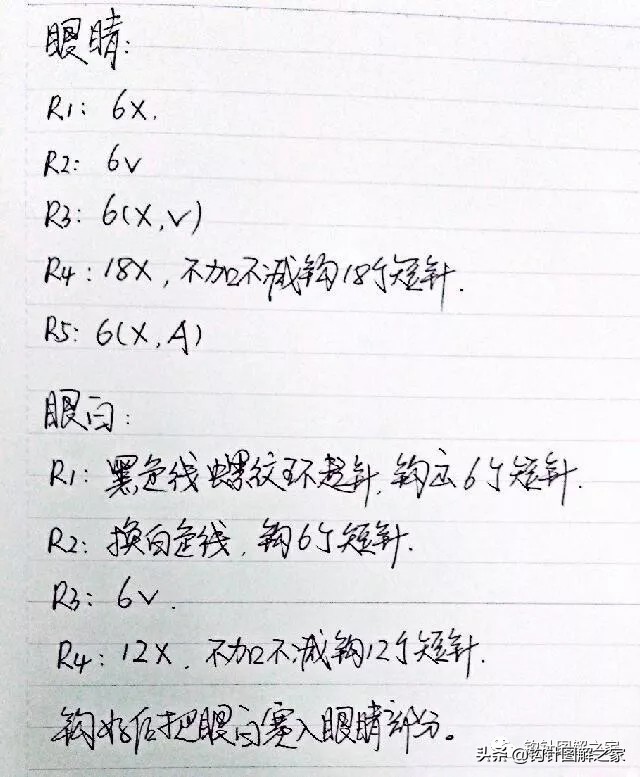 眼睛:
R1: 6X.
R2: 6V
R3: 6(X,V)
R4: 18X,不加不减钩18个短针.
R5: 6(X,A)
眼白:
R1: 黑色线螺纹环起针,钩出6个短针.
R2: 换白色线,钩6个短针.
R3: 6V.
R4: 12X,不加不减钩12个短针.
钩好后把眼白塞入眼睛部分。
钩针图解之家
头条@钩针图解之家